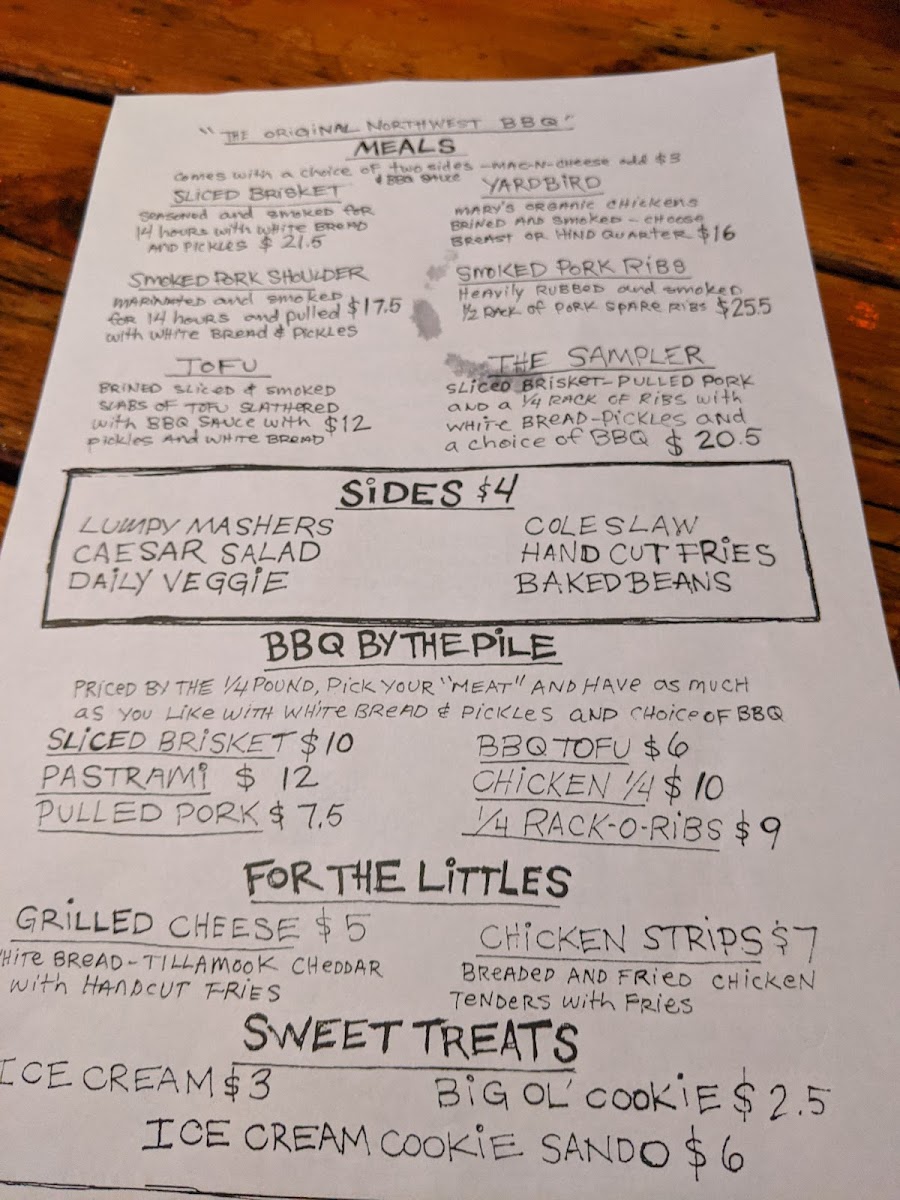 "THE ORIGINAL NORTHWEST BBQ"
MEALS
comes with a choice of two sides - MAC-N-CHEESE add $3
& BBQ SAUCE
SLICED BRISKET
SEASONED and SMOKED FOR
14 hours with WHITE BREAD
AND PICKLES $21.5
YARDBIRD
MARY'S ORGANIC CHICKENS
BRINED AND SMOKED - CHOOSE
BREAST OR HIND QUARTER $16
SMOKED PORK SHOULDER
MARINATED and SMOKED
for 14 hours and pulled $17.5
with WHITE BREAD & PICKLES
SMOKED PORK RIBS
HEAVILY RUBBED and smoked
1/2 RACK of PORK SPARE RIBS $25.5
TOFU
BRINED SLICED & SMOKED
SLABS OF TOFU SLATHERED
with BBQ SAUCE with $12
pickles AND WHITE BREAD
THE SAMPLER
SLICED BRISKET-PULLED PORK
AND a 1/4 RACK OF RIBS with
WHITE BREAD-PICKLES and
a choice of BBQ $20.5
SIDES $4
LUMPY MASHERS
CAESAR SALAD
DAILY VEGGIE
COLESLAW
HAND CUT FRIES
BAKED BEANS
BBQ BY THE PILE
PRICED BY THE 1/4 POUND, PICK YOUR "MEAT" AND HAVE as much
as YOU LIKE WITH WHITE BREAD & PICKLES AND CHOICE OF BBQ
SLICED BRISKET $10
PASTRAMI $12
PULLED PORK $7.5
BBQ TOFU $6
CHICKEN 1/4 $10
1/4 RACK-O-RIBS $9
FOR THE LITTLES
GRILLED CHEESE $5
HITE BREAD-TILLAMOOK CHEDDAR
with HANDCUT FRIES
CHICKEN STRIPS $7
BREADED AND FRIED CHICKEN
TENDERS with FRIES
SWEET TREATS
ICE CREAM $3
BIG OL' COOKIE $2.5
ICE CREAM COOKIE SANDO $6